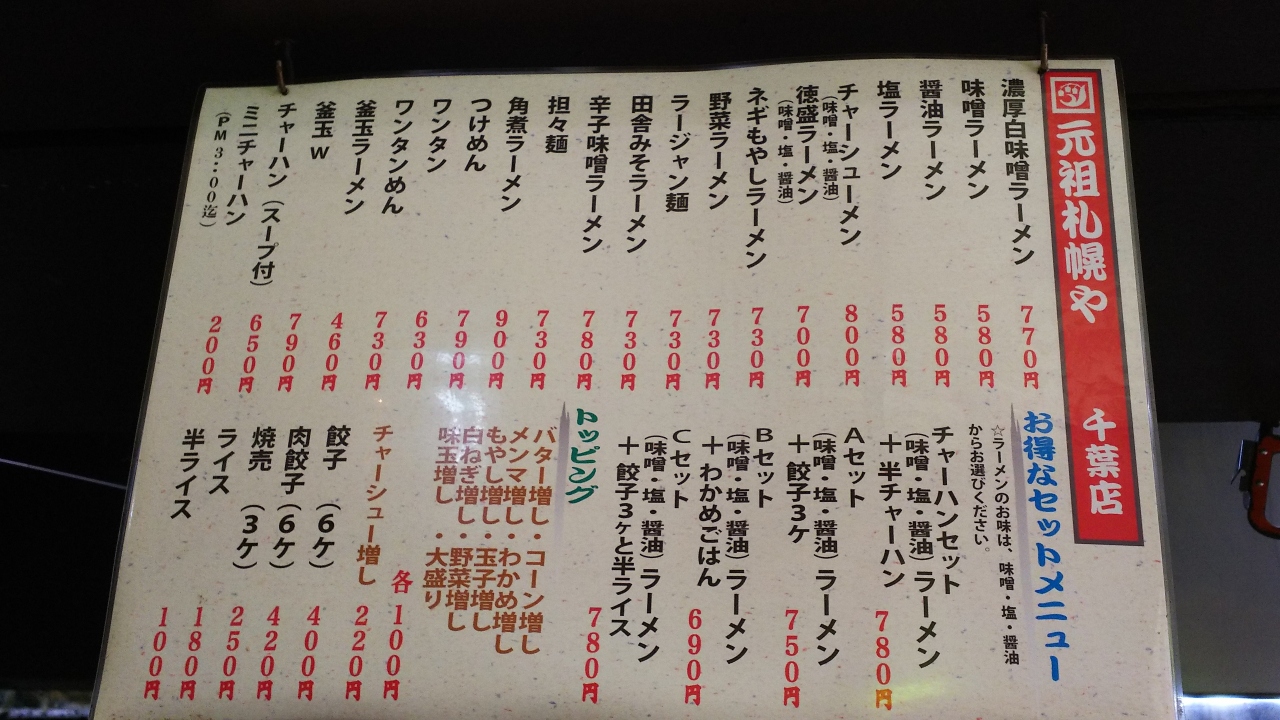 元祖札幌や 千葉店
濃厚白味噌ラーメン 770円
味噌ラーメン 580円
醤油ラーメン 580円
塩ラーメン 580円
チャーシューメン 800円
(味噌・塩・醤油)
徳盛ラーメン 700円
(味噌・塩・醤油)
ネギもやしラーメン 730円
野菜ラーメン 730円
ラージャン麺 730円
田舎みそラーメン 730円
辛子味噌ラーメン 780円
担々麺 730円
角煮ラーメン 900円
つけめん 790円
ワンタン 630円
ワンタンめん 730円
釜玉ラーメン 460円
釜玉W 790円
チャーハン(スープ付) 650円
ミニチャーハン 200円
(PM3:00迄)
お得なセットメニュー
☆ラーメンのお味は、味噌・塩・醤油
からお選びください。
チャーハンセット
(味噌・塩・醤油)ラーメン
+半チャーハン 780円
Aセット
(味噌・塩・醤油)ラーメン
+餃子3ケ 750円
Bセット
(味噌・塩・醤油)ラーメン
+わかめごはん 690円
Cセット
(味噌・塩・醤油)ラーメン
+餃子3ケと半ライス 780円
トッピング
バター増し・コーン増し
メンマ増し・わかめ増し
もやし増し・玉子増し
白ねぎ増し・野菜増し
味玉増し・大盛り
各100円
チャーシュー増し 220円
餃子(6ケ) 400円
肉餃子(6ケ) 420円
焼売(3ケ) 250円
ライス 180円
半ライス 100円